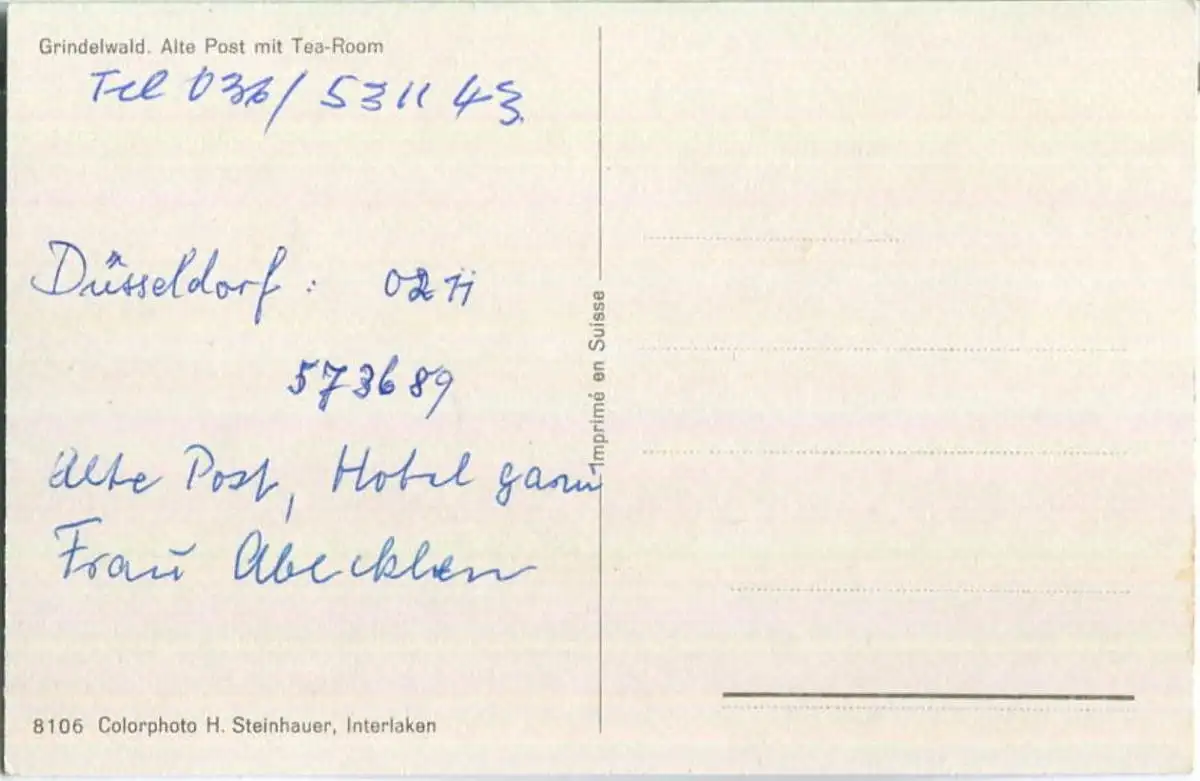 Grindelwald. Alte Post mit Tea-Room
Tel 036/531143
Düsseldorf: 0211
573689
Alte Post, Hotel garni
Frau
Imprimé en Suisse
8106 Colorphoto H. Steinhauer, Interlaken